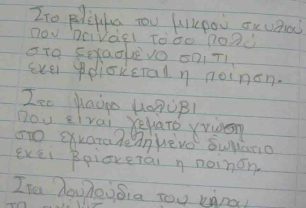 Στο βλέμμα του μικρού σκυλιού
που πεινάει τόσο πολύ
στο ξεχασμένο σπίτι,
εκεί βρίσκεται η ποίηση.
Στο μαύρο μολύβι
που είναι γεμάτο γνώση
στο εγκαταλελημένο δωμάτιο
εκεί βρίσκεται η ποίηση.
Στα λουλούδια του κήπου